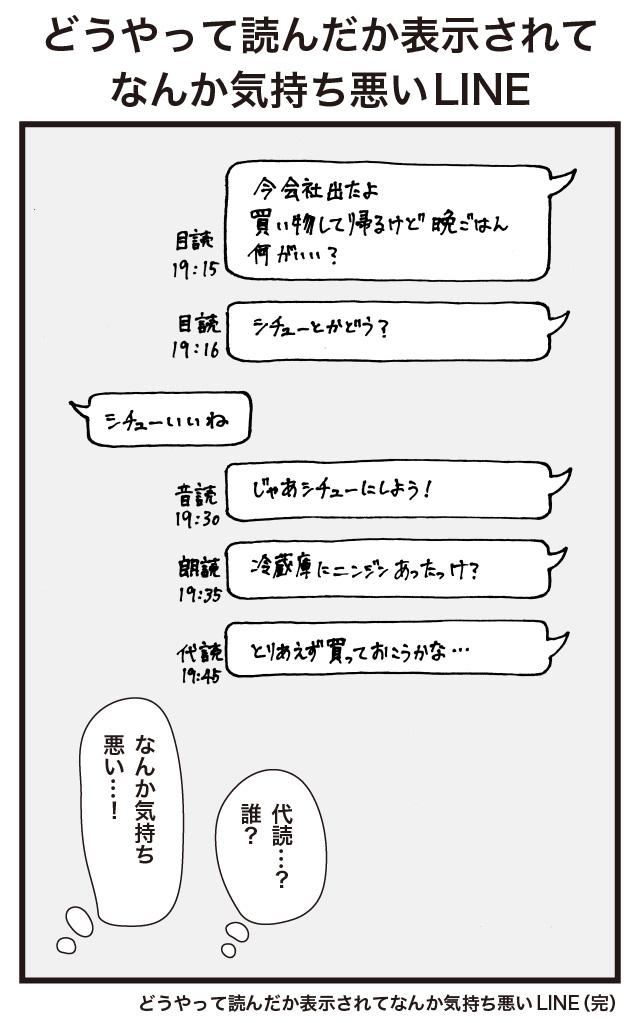 どうやって読んだか表示されて
なんか気持ち悪いLINE
今会社出たよ
買い物して帰るけど晩ごはん
何がいい?
目読
19:15
シチューとかどう?
目読
19:16
シチューいいね
じゃあシチューにしよう!
音読
19:30
冷蔵庫にニンジンあったっけ?
朗読
19:35
とりあえず買っておこうかな…
代読
19:45
代読…?
誰?
なんか気持ち
悪い…!
どうやって読んだか表示されてなんか気持ち悪いLINE(完)